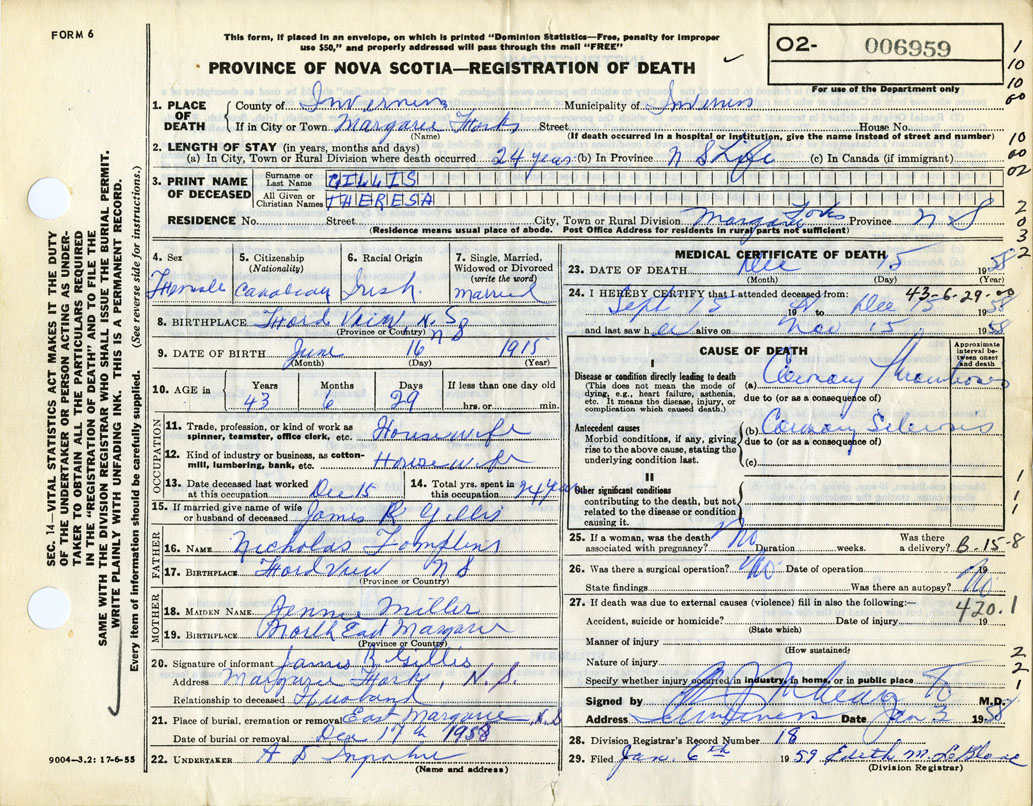 FORM 6
This form, if placed in an envelope, on which is printed "Dominion Statistics—Free, penalty for improper
use $50," and properly addressed will pass through the mail "FREE"
O2- 006959
PROVINCE OF NOVA SCOTIA—REGISTRATION OF DEATH
For use of the Department only
1. PLACE OF DEATH
County of Inverness Municipality of Inverness
If in City or Town Margaree Forks Street House No.
(Name) (If death occurred in a hospital or institution, give the name instead of street and number)
2. LENGTH OF STAY (in years, months and days)
(a) In City, Town or Rural Division where death occurred 24 years (b) In Province N S Life (c) In Canada (if immigrant)
3. PRINT NAME OF DECEASED
Surname or Last Name GILLIS
All Given or Christian Names THERESA
RESIDENCE No. Street City, Town or Rural Division Margaree Forks Province N S
(Residence means usual place of abode. Post Office Address for residents in rural parts not sufficient)
4. Sex Female
5. Citizenship (Nationality) Canadian
6. Racial Origin Irish
7. Single, Married, Widowed or Divorced (write the word) Married
8. BIRTHPLACE Ford View N. S.
(Province or Country) N S
9. DATE OF BIRTH June 16 1915
(Month) (Day) (Year)
10. AGE in Years Months Days If less than one day old
43 6 29 hrs. or min.
OCCUPATION
11. Trade, profession, or kind of work as spinner, teamster, office clerk, etc. Housewife
12. Kind of industry or business, as cotton-mill, lumbering, bank, etc. Housewife
13. Date deceased last worked at this occupation Dec 15
14. Total yrs. spent in this occupation 24 years
15. If married give name of wife or husband of deceased James R Gillis
FATHER
16. NAME Nicholas Tompkins
17. BIRTHPLACE Ford View N S
(Province or Country)
MOTHER
18. MAIDEN NAME Jennie Miller
19. BIRTHPLACE North East Margaree
(Province or Country)
20. Signature of informant James R Gillis
Address Margaree Forks, N.S.
Relationship to deceased Husband
21. Place of burial, cremation or removal East Margaree N.S
Date of burial or removal Dec 17th 1958
22. UNDERTAKER A D
(Name and address)
9004—3.2: 17-6-55
MEDICAL CERTIFICATE OF DEATH
23. DATE OF DEATH Dec 15 1958
(Month) (Day) (Year)
24. I HEREBY CERTIFY that I attended deceased from: 43-6-29-00
Sept 15 19 to Dec 15 1958
and last saw her alive on 15 1958
CAUSE OF DEATH
Approximate interval between onset and death
I
Disease or condition directly leading to death
(This does not mean the mode of dying, e.g., heart failure, asthenia, etc. It means the disease, injury, or complication which caused death.)
(a) Coronary Thrombosis
due to (or as a consequence of)
Antecedent causes
Morbid conditions, if any, giving rise to the above cause, stating the underlying condition last.
(b) Coronary Sclerosis
due to (or as a consequence of)
(c)
II
Other significant conditions
contributing to the death, but not related to the disease or condition causing it.
25. If a woman, was the death associated with pregnancy? No Duration weeks. Was there a delivery? B-15-8
26. Was there a surgical operation? No Date of operation 19
State findings Was there an autopsy? No
27. If death was due to external causes (violence) fill in also the following:— 420.1
Accident, suicide or homicide? Date of injury 19
(State which)
Manner of injury
(How sustained)
Nature of injury
Specify whether injury occurred in industry, in home, or in public place
Signed by M.D.
Address Inverness Date Jan 3 1958
28. Division Registrar's Record Number 18
29. Filed Jan. 6th 1959 Edith M. LeBlanc
(Division Registrar)
SEC. 14—VITAL STATISTICS ACT MAKES IT THE DUTY
OF THE UNDERTAKER OR PERSON ACTING AS UNDER-
TAKER TO OBTAIN ALL THE PARTICULARS REQUIRED
IN THE "REGISTRATION OF DEATH" AND TO FILE THE
SAME WITH THE DIVISION REGISTRAR WHO SHALL ISSUE THE BURIAL PERMIT.
WRITE PLAINLY WITH UNFADING INK. THIS IS A PERMANENT RECORD.
Every item of information should be carefully supplied. (See reverse side for instructions.)
1
10
10
60
10
60
02
2
0
3
2
1
1
1
2
2
1